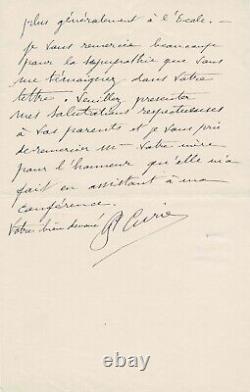 plus généralement à l'Ecole. –
Je vous remercie beaucoup
pour la sympathie que vous
me témoignez dans votre
lettre. Veuillez présenter
mes salutations respectueuses
à vos parents et je vous prie
de remercier Mme votre mère
pour l'honneur qu'elle m'a
fait en assistant à ma
conférence.
Votre bien dévoué P Curie
© 164eb.com